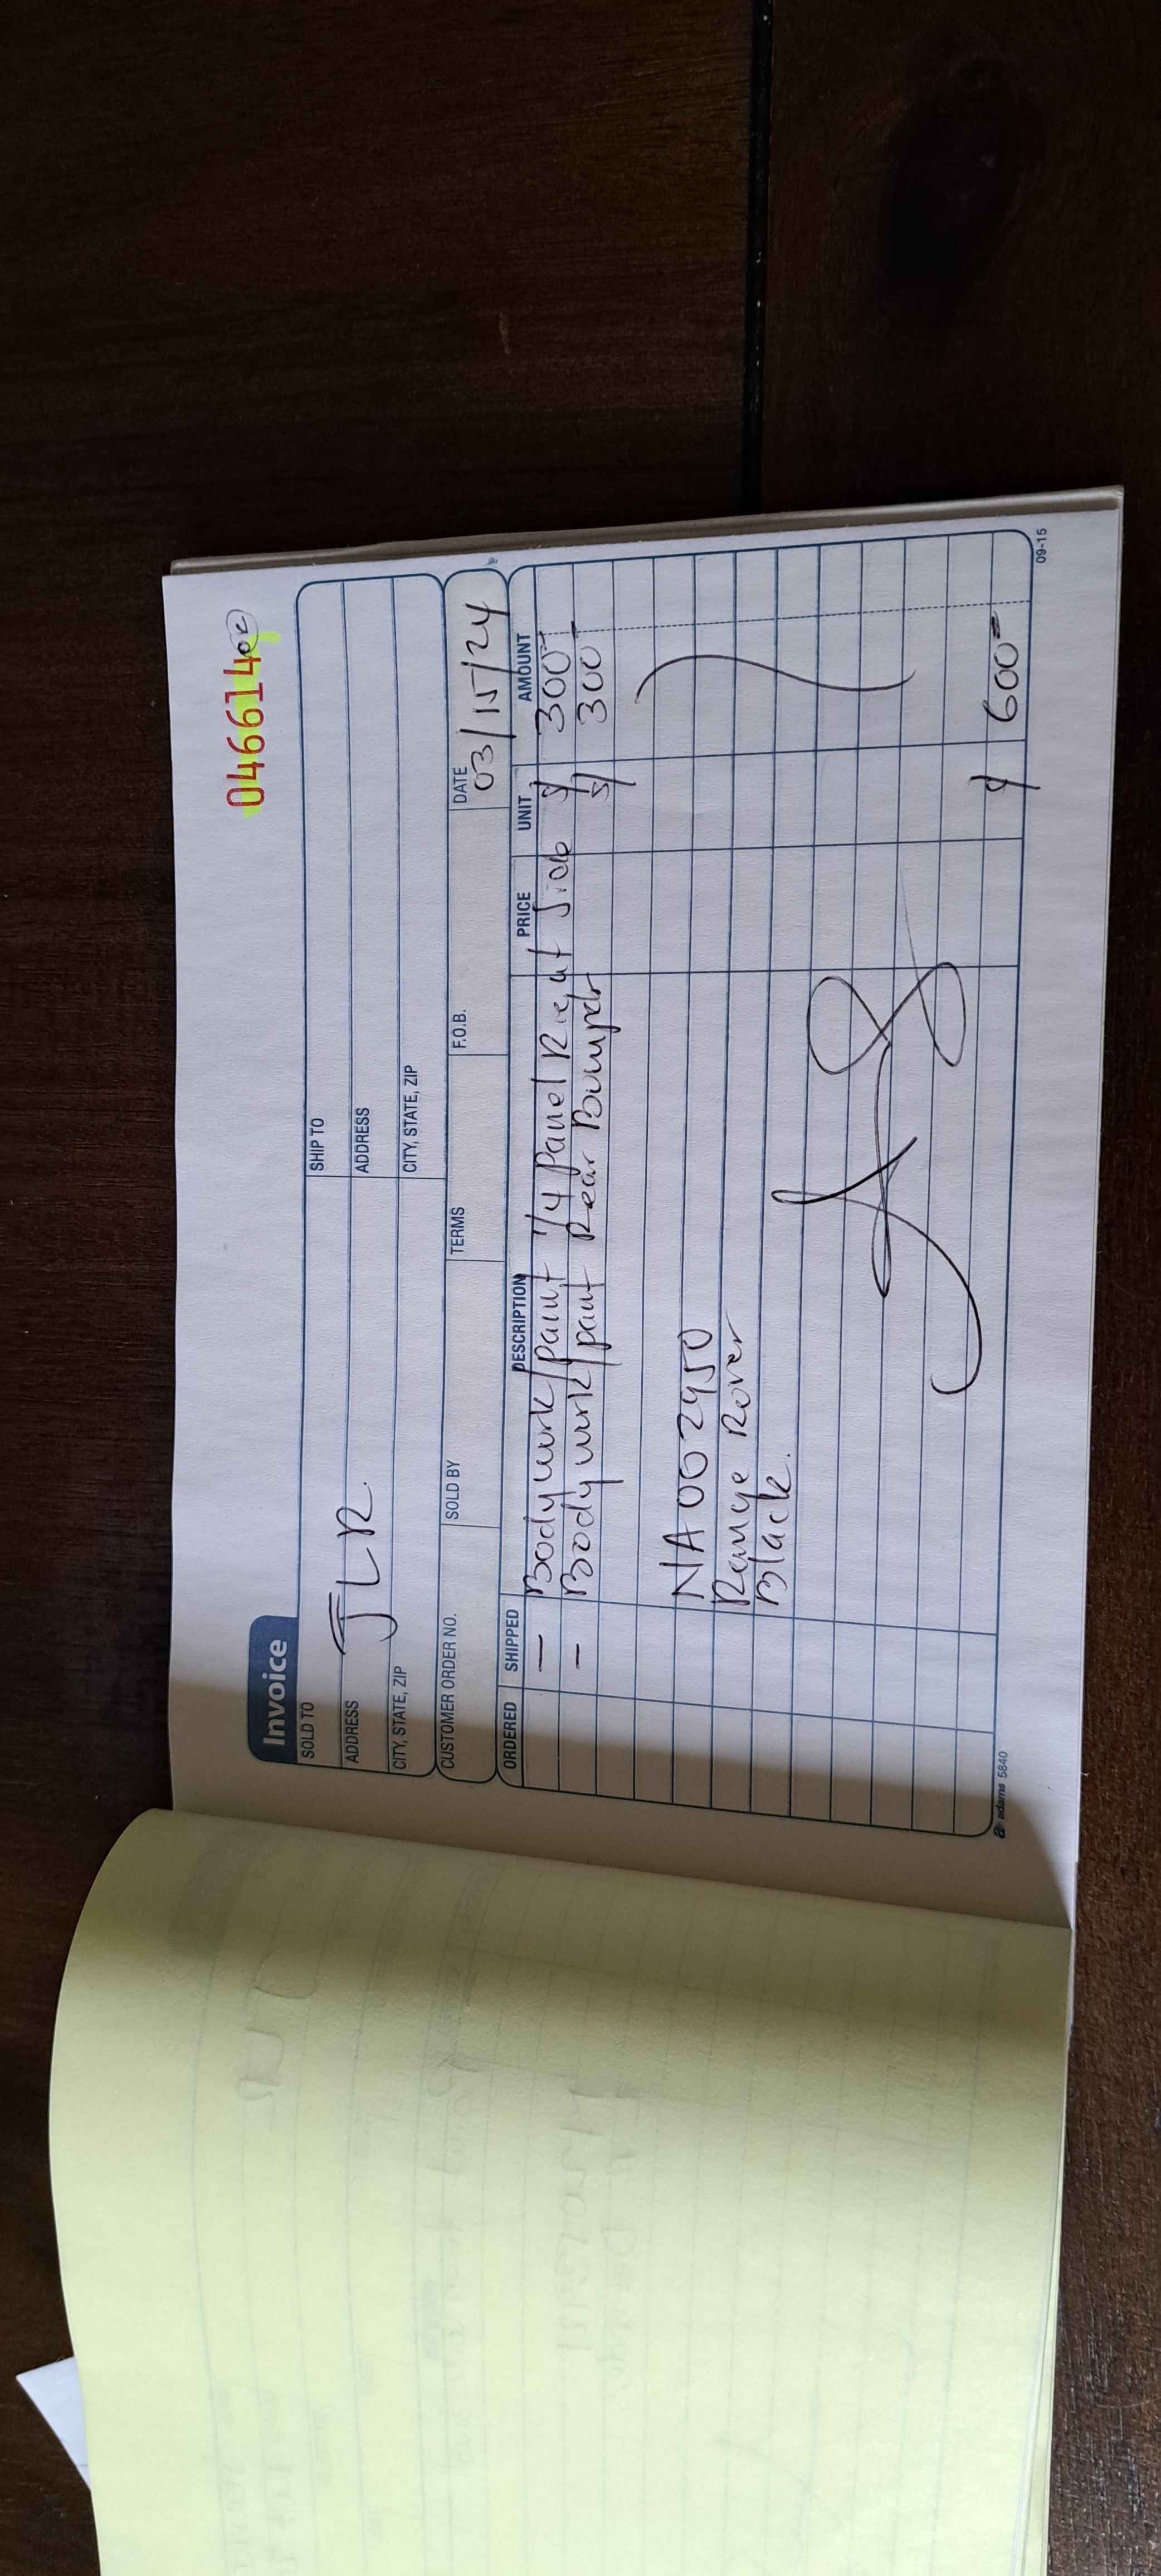 046614
Invoice
SOLD TO
JLR.
SHIP TO
ADDRESS
ADDRESS
CITY, STATE, ZIP
CITY, STATE, ZIP
CUSTOMER ORDER NO.
SOLD BY
TERMS
F.O.B.
DATE
03/15/24
ORDERED SHIPPED DESCRIPTION PRICE UNIT AMOUNT
— Bodywork/paint 1/4 Panel Right Side $ 300
— Bodywork/paint Rear Bumper $ 300
NA002450
Range Rover
Black.
$ 600
adams 5840
09-15